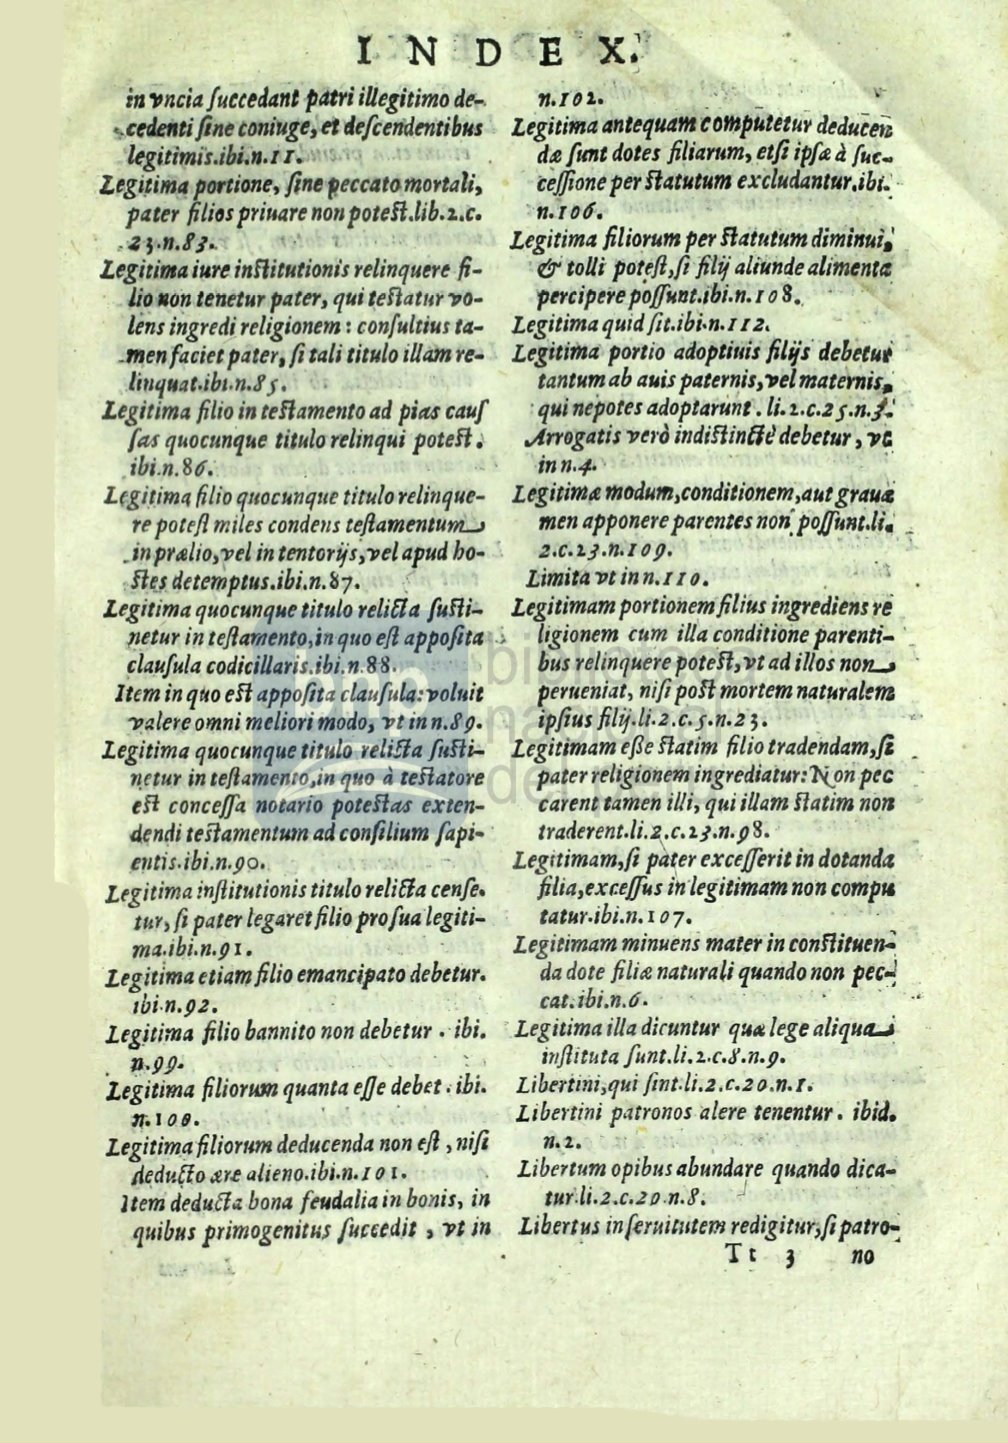 INDEX.
in vncia ſuccedant patri illegitimo de-
cedenti ſine coniuge, et deſcendentibus
legitimis.ibi.n.11.
Legitima portione, ſine peccato mortali,
pater filios priuare non poteſt.lib.2.c.
23.n.83.
Legitima iure inſtitutionis relinquere fi-
lio non tenetur pater, qui teſtatur vo-
lens ingredi religionem: conſultius ta-
men faciet pater, ſi tali titulo illam re-
linquat.ibi.n.85.
Legitima filio in teſtamento ad pias cauſ
ſas quocunque titulo relinqui poteſt.
ibi.n.86.
Legitima filio quocunque titulo relinque-
re poteſt miles condens teſtamentum
in prælio, vel in tentorijs, vel apud ho-
ſtes detemptus.ibi.n.87.
Legitima quocunque titulo relicta ſuſti-
netur in teſtamento, in quo eſt appoſita
clauſula codicillaris.ibi.n.88.
Item in quo eſt appoſita clauſula: voluit
valere omni meliori modo, vt in n.89.
Legitima quocunque titulo relicta ſuſti-
netur in teſtamento, in quo à teſtatore
eſt conceſſa notario poteſtas exten-
dendi teſtamentum ad conſilium ſapi-
entis.ibi.n.90.
Legitima inſtitutionis titulo relicta cenſe-
tur, ſi pater legaret filio pro ſua legiti-
ma.ibi.n.91.
Legitima etiam filio emancipato debetur.
ibi.n.92.
Legitima filio bannito non debetur. ibi.
n.99.
Legitima filiorum quanta eſſe debet. ibi.
n.100.
Legitima filiorum deducenda non eſt, niſi
deducto ære alieno.ibi.n.101.
Item deducta bona feudalia in bonis, in
quibus primogenitus ſuccedit, vt in
n.102.
Legitima antequam computetur deducen
dæ ſunt dotes filiarum, etſi ipſæ à ſuc-
ceſſione per ſtatutum excludantur.ibi.
n.106.
Legitima filiorum per ſtatutum diminui,
& tolli poteſt, ſi filij aliunde alimenta
percipere poſſunt.ibi.n.108.
Legitima quid ſit.ibi.n.112.
Legitima portio adoptiuis filijs debetur
tantum ab auis paternis, vel maternis,
qui nepotes adoptarunt. li.2.c.25.n.3.
Arrogatis verò indiſtinctè debetur, vt
in n.4.
Legitimæ modum, conditionem, aut graua
men apponere parentes non poſſunt.li.
2.c.23.n.109.
Limita vt in n.110.
Legitimam portionem filius ingrediens re
ligionem cum illa conditione parenti-
bus relinquere poteſt, vt ad illos non
perueniat, niſi poſt mortem naturalem
ipſius filij.li.2.c.5.n.23.
Legitimam eſſe ſtatim filio tradendam, ſi
pater religionem ingrediatur: Non pec
carent tamen illi, qui illam ſtatim non
traderent.li.2.c.23.n.98.
Legitimam, ſi pater exceſſerit in dotanda
filia, exceſſus in legitimam non compu
tatur.ibi.n.107.
Legitimam minuens mater in conſtituen-
da dote filiæ naturali quando non pec-
cat.ibi.n.6.
Legitima illa dicuntur quæ lege aliqua
inſtituta ſunt.li.2.c.8.n.9.
Libertini, qui ſint.li.2.c.20.n.1.
Libertini patronos alere tenentur. ibid.
n.2.
Libertum opibus abundare quando dica-
tur.li.2.c.20.n.8.
Libertus in ſeruitutem redigitur, ſi patro-
Tt 3 no
bnp biblioteca
nacional
del